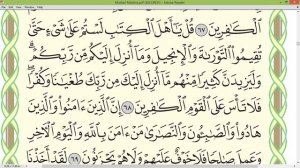 (SECURED) - Adobe Reader
ٱلْكَٰفِرِينَ ٦٧ قُلْ يَٰٓأَهْلَ ٱلْكِتَٰبِ لَسْتُمْ عَلَىٰ شَىْءٍ حَتَّىٰ
تُقِيمُوا۟ ٱلتَّوْرَىٰةَ وَٱلْإِنجِيلَ وَمَآ أُنزِلَ إِلَيْكُم مِّن رَّبِّكُمْ ۗ
وَلَيَزِيدَنَّ كَثِيرًا مِّنْهُم مَّآ أُنزِلَ إِلَيْكَ مِن رَّبِّكَ طُغْيَٰنًا وَكُفْرًا ۖ
فَلَا تَأْسَ عَلَى ٱلْقَوْمِ ٱلْكَٰفِرِينَ ٦٨ إِنَّ ٱلَّذِينَ ءَامَنُوا۟ وَٱلَّذِينَ
هَادُوا۟ وَٱلصَّٰبِـُٔونَ وَٱلنَّصَٰرَىٰ مَنْ ءَامَنَ بِٱللَّهِ وَٱلْيَوْمِ ٱلْءَاخِرِ
وَعَمِلَ صَٰلِحًا فَلَا خَوْفٌ عَلَيْهِمْ وَلَا هُمْ يَحْزَنُونَ ٦٩ لَقَدْ أَخَذْنَا